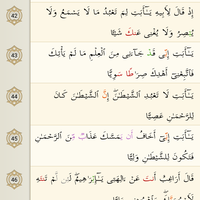 إِذْ قَالَ لِأَبِيهِ يَـٰٓأَبَتِ لِمَ تَعْبُدُ مَا لَا يَسْمَعُ وَلَا
يُبْصِرُ وَلَا يُغْنِى عَنكَ شَيْـًٔا
42
يَـٰٓأَبَتِ إِنِّى قَدْ جَآءَنِى مِنَ ٱلْعِلْمِ مَا لَمْ يَأْتِكَ
فَٱتَّبِعْنِىٓ أَهْدِكَ صِرَٰطًا سَوِيًّا
43
يَـٰٓأَبَتِ لَا تَعْبُدِ ٱلشَّيْطَـٰنَ ۖ إِنَّ ٱلشَّيْطَـٰنَ كَانَ
لِلرَّحْمَـٰنِ عَصِيًّا
44
يَـٰٓأَبَتِ إِنِّىٓ أَخَافُ أَن يَمَسَّكَ عَذَابٌ مِّنَ ٱلرَّحْمَـٰنِ
فَتَكُونَ لِلشَّيْطَـٰنِ وَلِيًّا
45
قَالَ أَرَاغِبٌ أَنتَ عَنْ ءَالِهَتِى يَـٰٓإِبْرَٰهِيمُ ۖ لَئِن لَّمْ تَنتَهِ
46